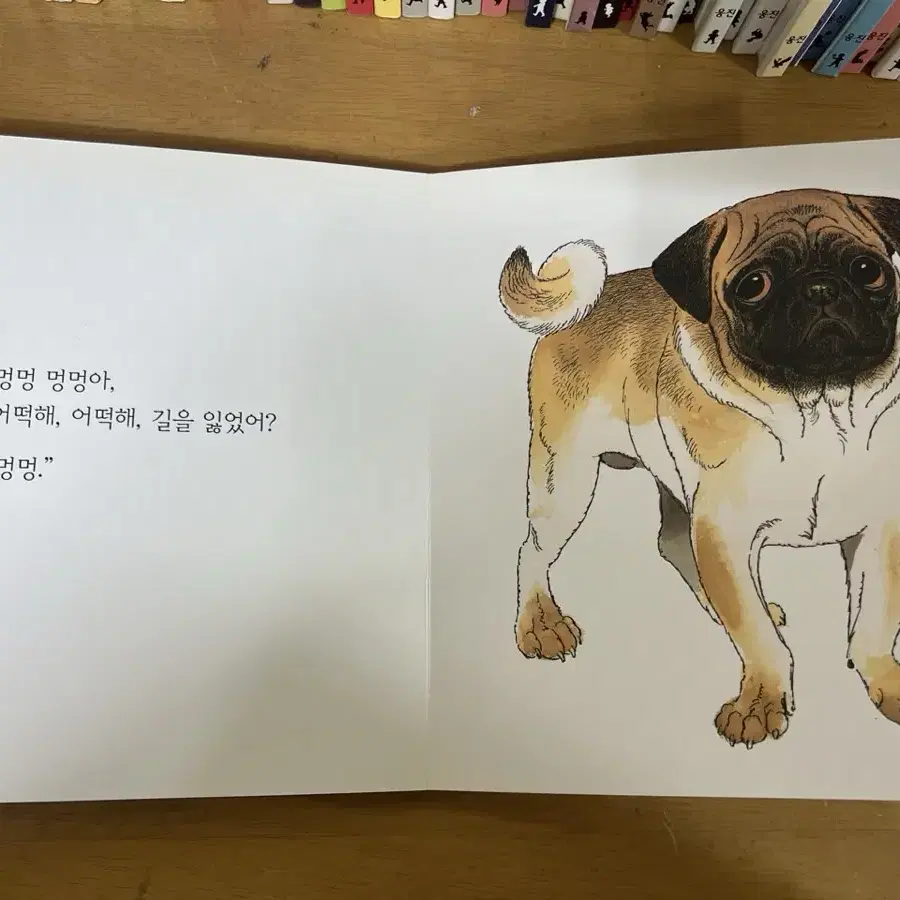 웅진
웅진
웅진
웅진
웅진
멍멍 멍멍아,
어떡해, 어떡해, 길을 잃었어?
멍멍.”